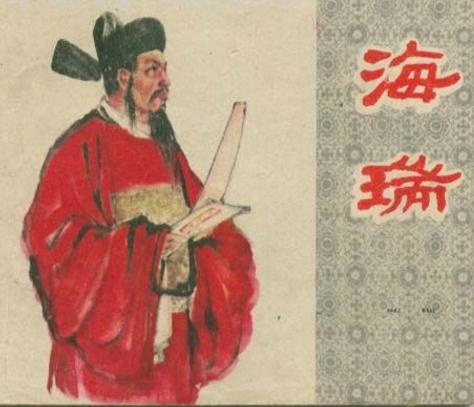 海
瑞
HAI RUI